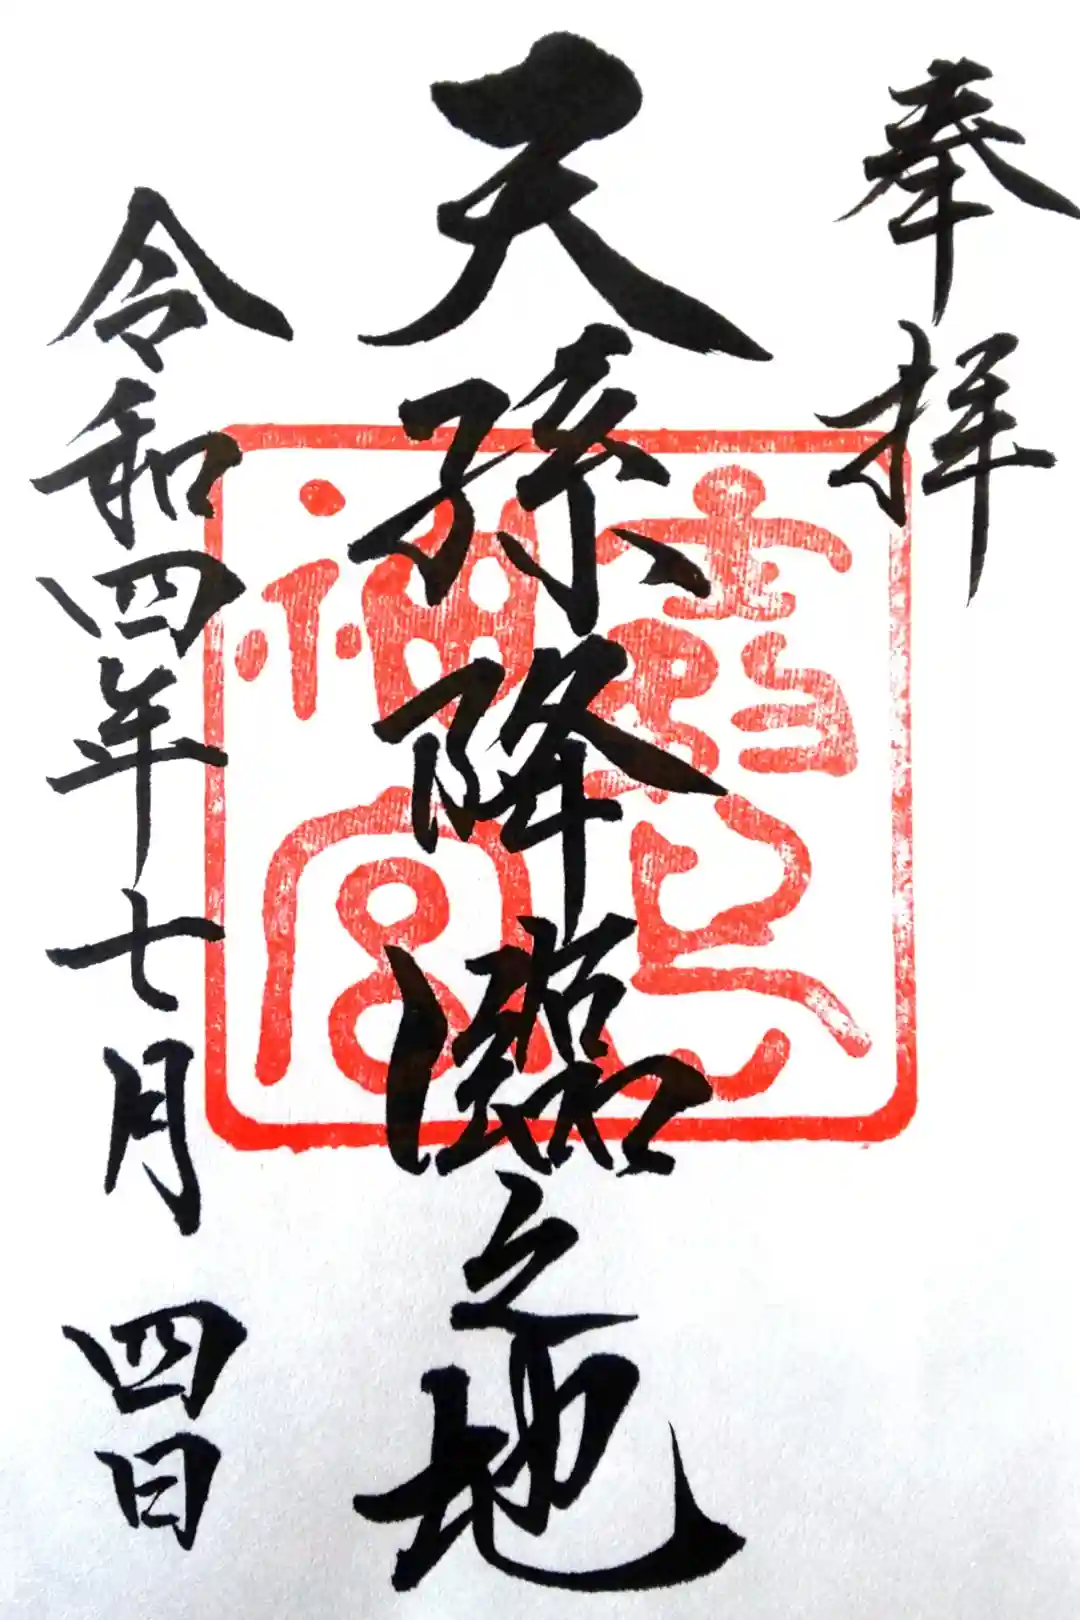 奉拝
天孫降臨之地
霧島
神宮
令和四年七月四日